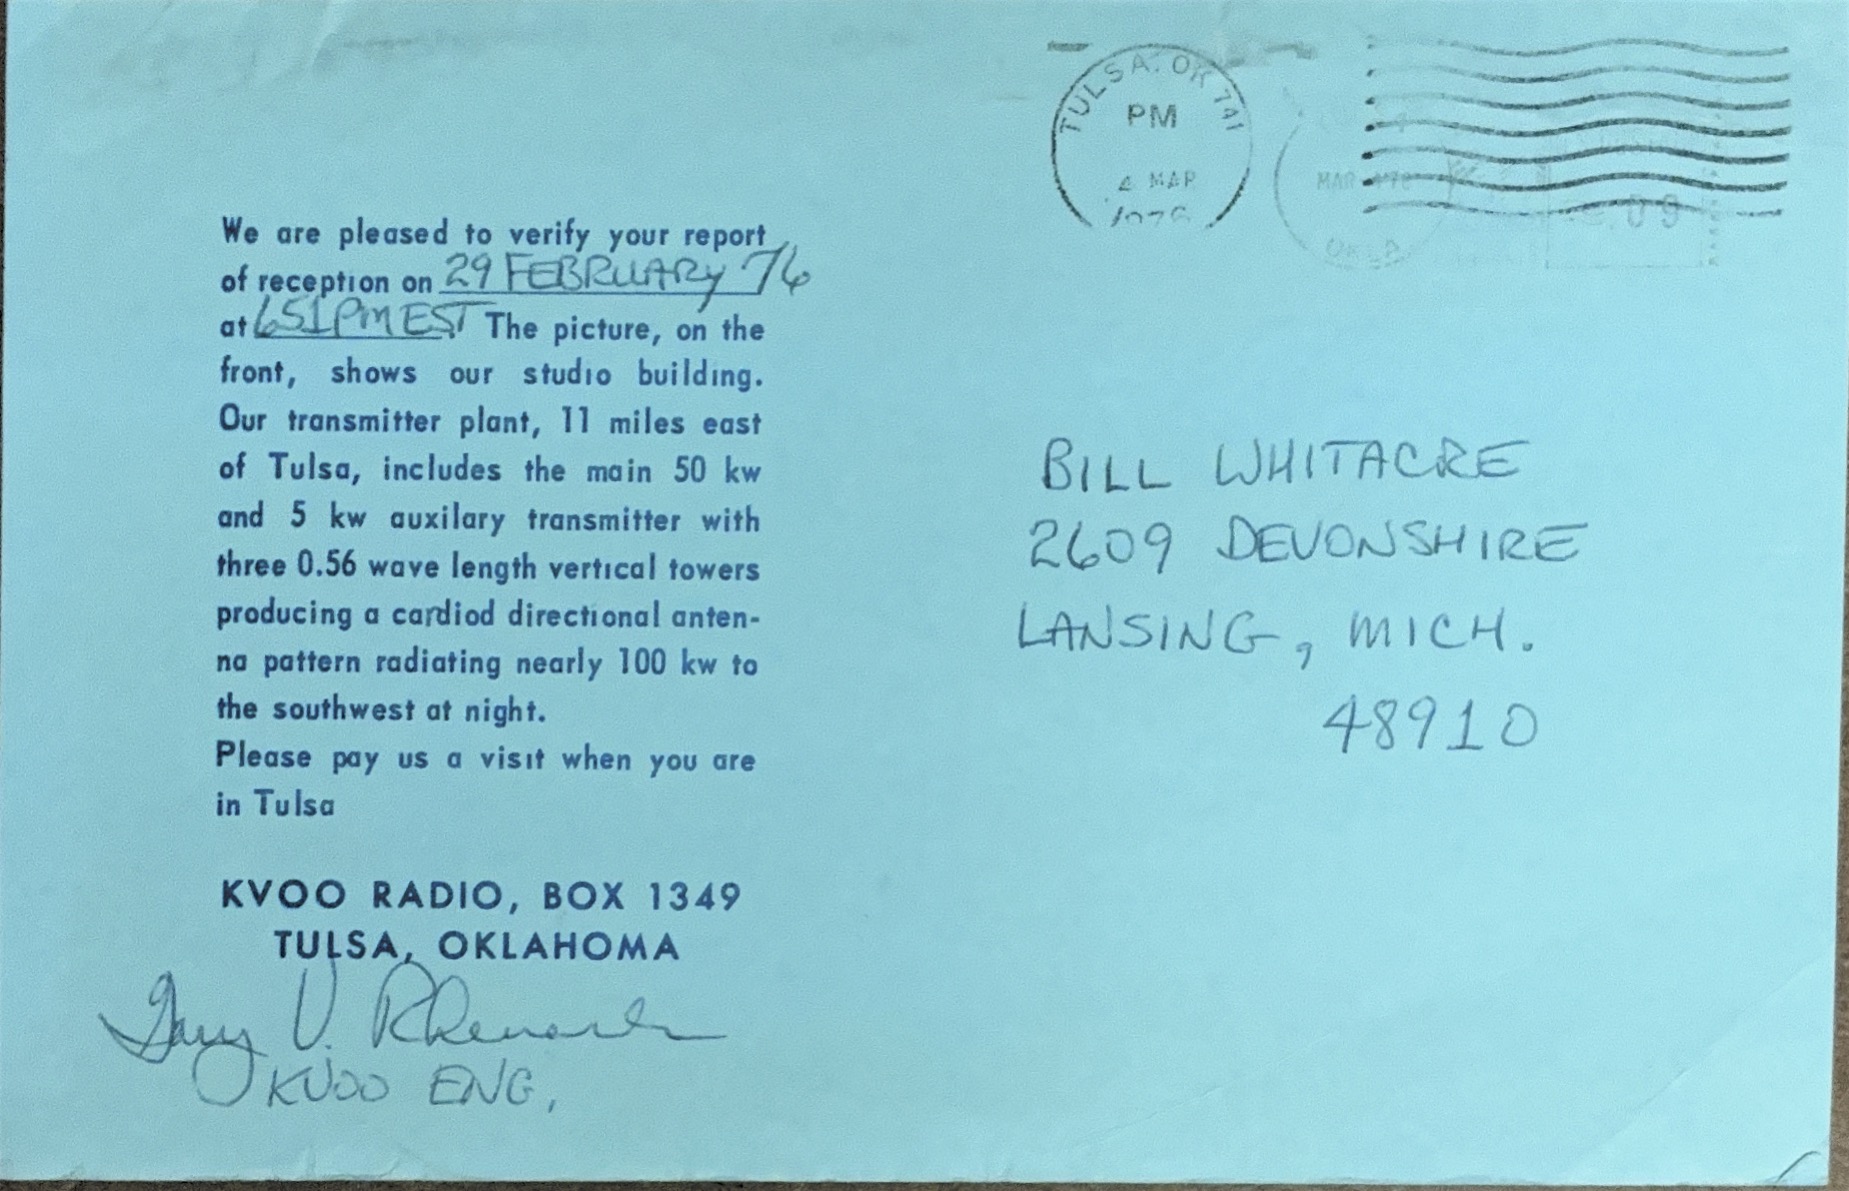 TULSA, OK 741
PM
4 MAR
1976
MAR 4 '76
OKLA
.09
We are pleased to verify your report
of reception on 29 FEBRUARY 76
at 651 PM EST The picture, on the
front, shows our studio building.
Our transmitter plant, 11 miles east
of Tulsa, includes the main 50 kw
and 5 kw auxilary transmitter with
three 0.56 wave length vertical towers
producing a cardiod directional anten-
na pattern radiating nearly 100 kw to
the southwest at night.
Please pay us a visit when you are
in Tulsa
KVOO RADIO, BOX 1349
TULSA, OKLAHOMA
Gary V.
KVOO ENG.
BILL WHITACRE
2609 DEVONSHIRE
LANSING, MICH.
48910